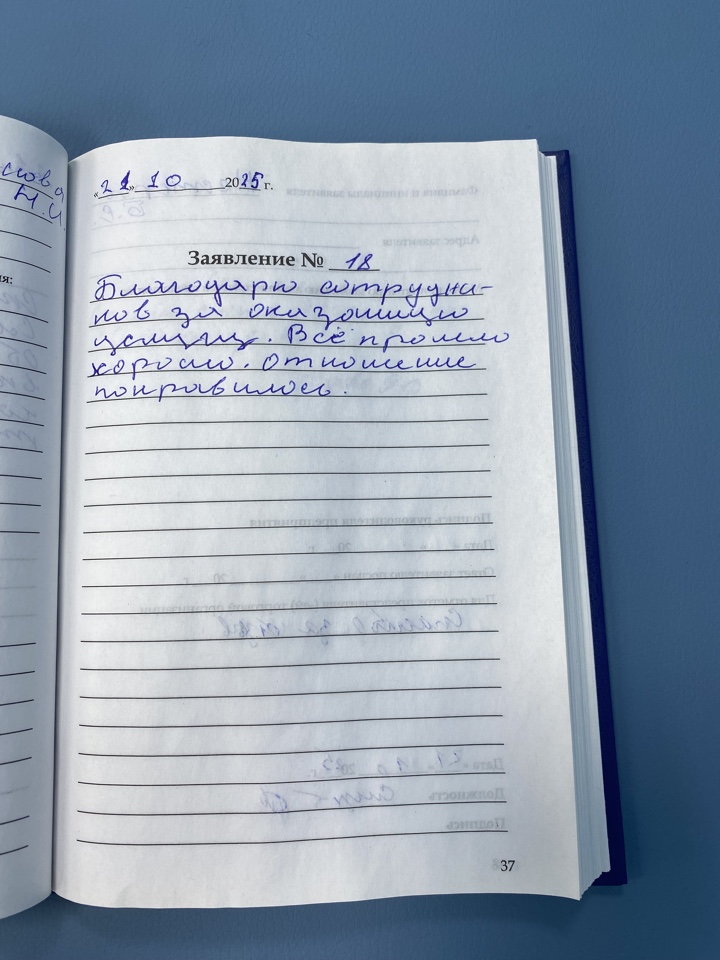 слова
Н.И.
ия:
«21» 10 2025 г.
Заявление № 18
Благодарю сотрудни-
ков за оказанную
услугу. Всё прошло
хорошо. Отношение
понравилось.
37